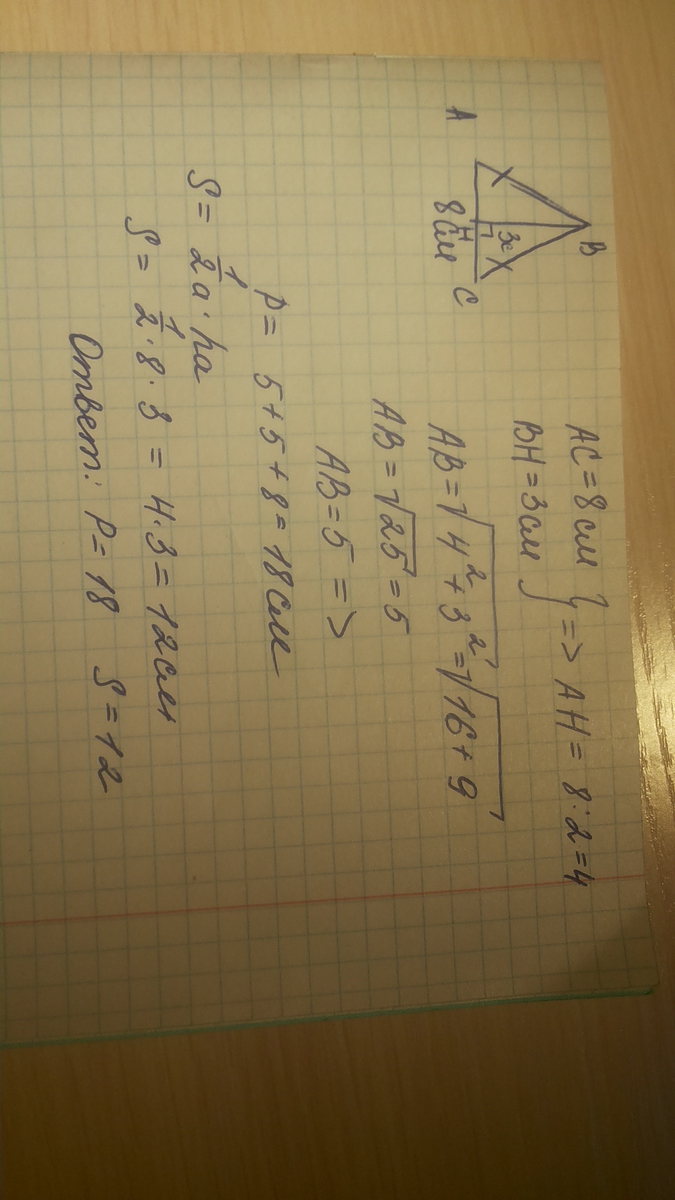 B
A
3
H
C
8см
AC = 8 см
BH = 3 см } => AH = 8 : 2 = 4
AB = √4² + 3² = √16 + 9
AB = √25 = 5
AB = 5 =>
P = 5 + 5 + 8 = 18 см
S = 1/2 a · ha
S = 1/2 · 8 · 3 = 4 · 3 = 12 см
Ответ: P = 18 S = 12